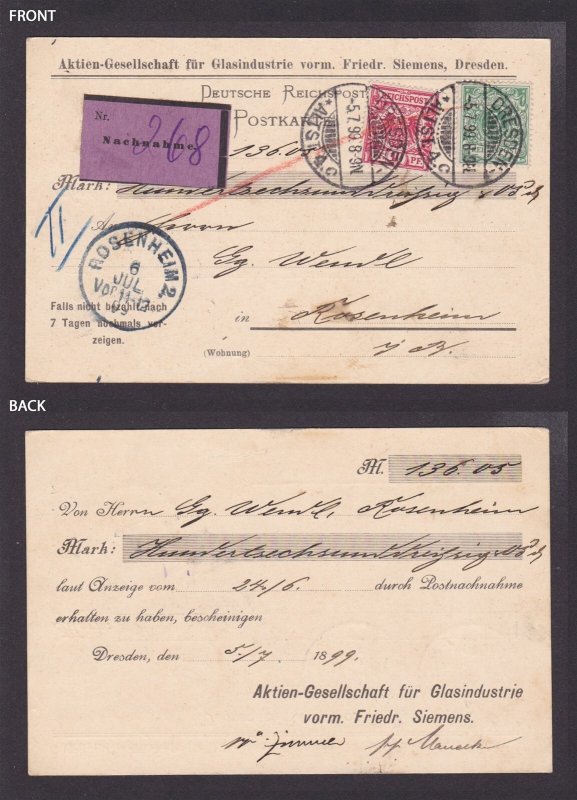 FRONT
Aktien-Gesellschaft für Glasindustrie vorm. Friedr. Siemens, Dresden.
DEUTSCHE REICHSPOST
POSTKAR
Nr. 268
Nachnahme
REICHSPOST
PF
DRESDEN
ALTST.
5.7.99.8-9N.
136.05
Mark: Hundertsechsunddreißig u 05 Pf
An Herrn
Gg. Wendl
in Rosenheim
(Wohnung) i/B.
ROSENHEIM 2
6
JUL
VOR 11-12
99
Falls nicht bezahlt nach
7 Tagen nochmals vor-
zeigen.
BACK
M. 136.05
Von Herrn Gg. Wendl, Rosenheim
Mark: Hundertsechsunddreißig u 05 Pf
laut Anzeige vom 24/6. durch Postnachnahme
erhalten zu haben, bescheinigen
Dresden, den 5/7 1899.
Aktien-Gesellschaft für Glasindustrie
vorm. Friedr. Siemens.